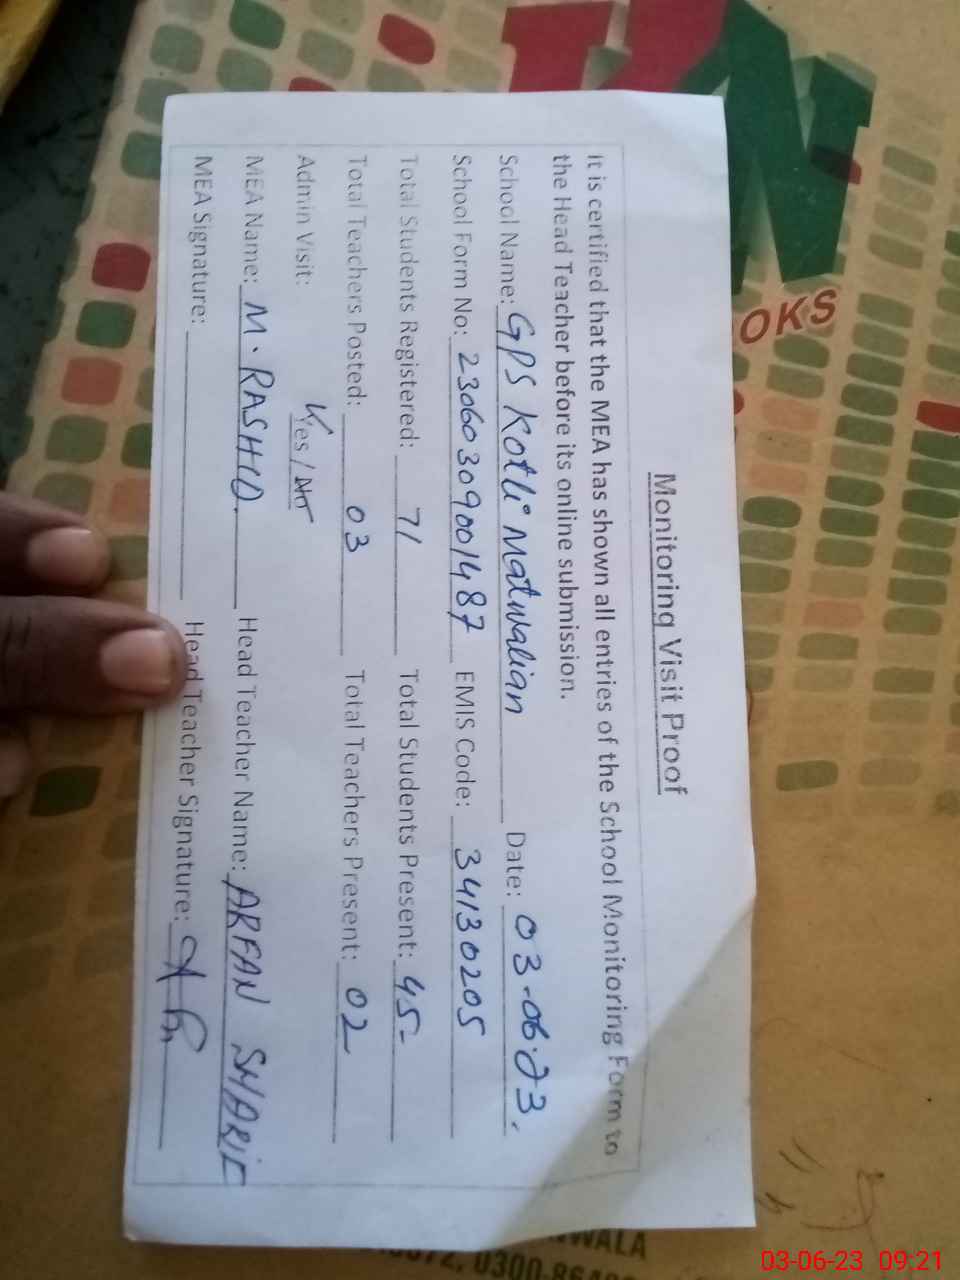 Monitoring Visit Proof
It is certified that the MEA has shown all entries of the School Monitoring Form to
the Head Teacher before its online submission.
School Name: GPS Kotli Matwalian Date: 03-06-23.
School Form No: 23060309001487 EMIS Code: 34130205
Total Students Registered: 71 Total Students Present: 45
Total Teachers Posted: 03 Total Teachers Present: 02
Admin Visit: Yes / No
MEA Name: M. RASHID Head Teacher Name: ARFAN SHARIF
MEA Signature: Head Teacher Signature:
OKS
03-06-23 09:21